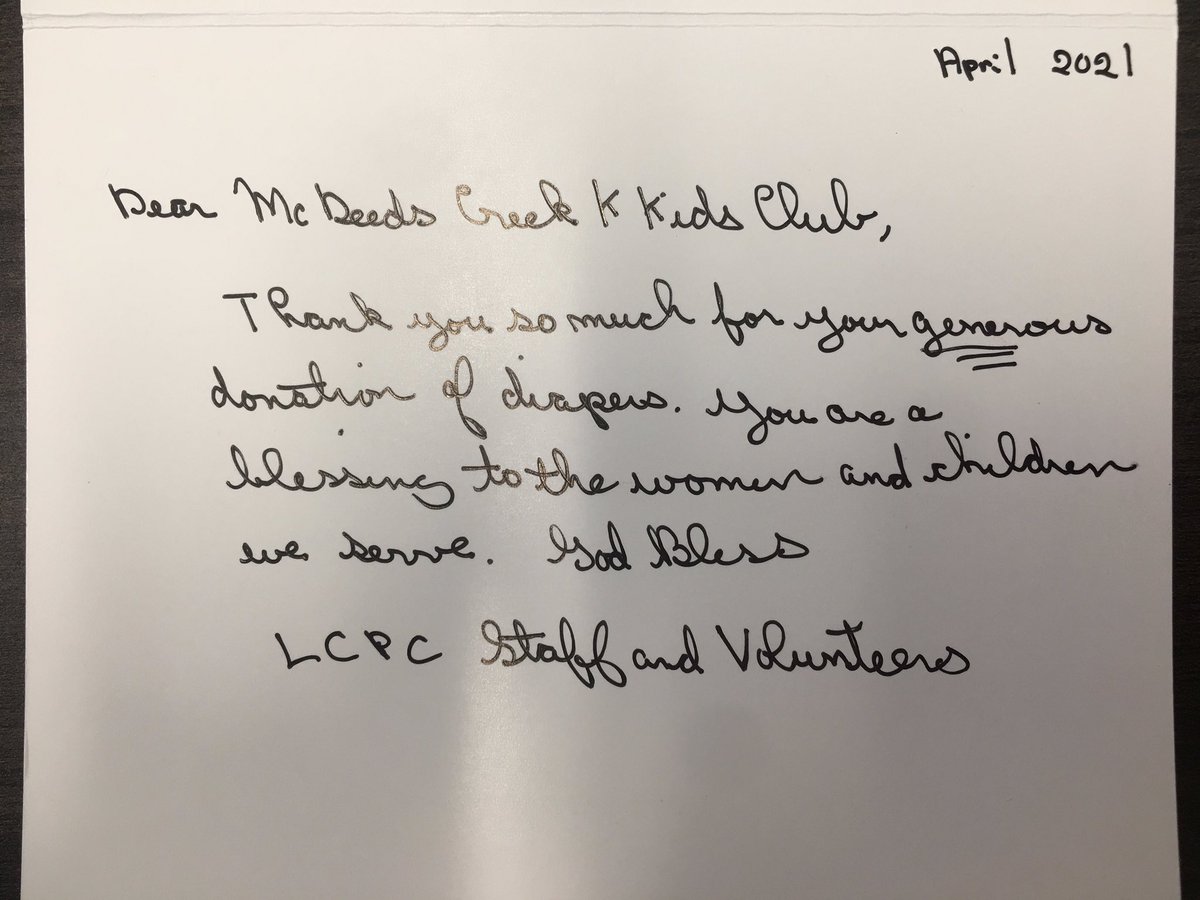 April 2021
Dear McDeeds Creek K Kids Club,
Thank you so much for your generous
donation of diapers. You are a
blessing to the women and children
we serve. God Bless
LCPC Staff and Volunteers